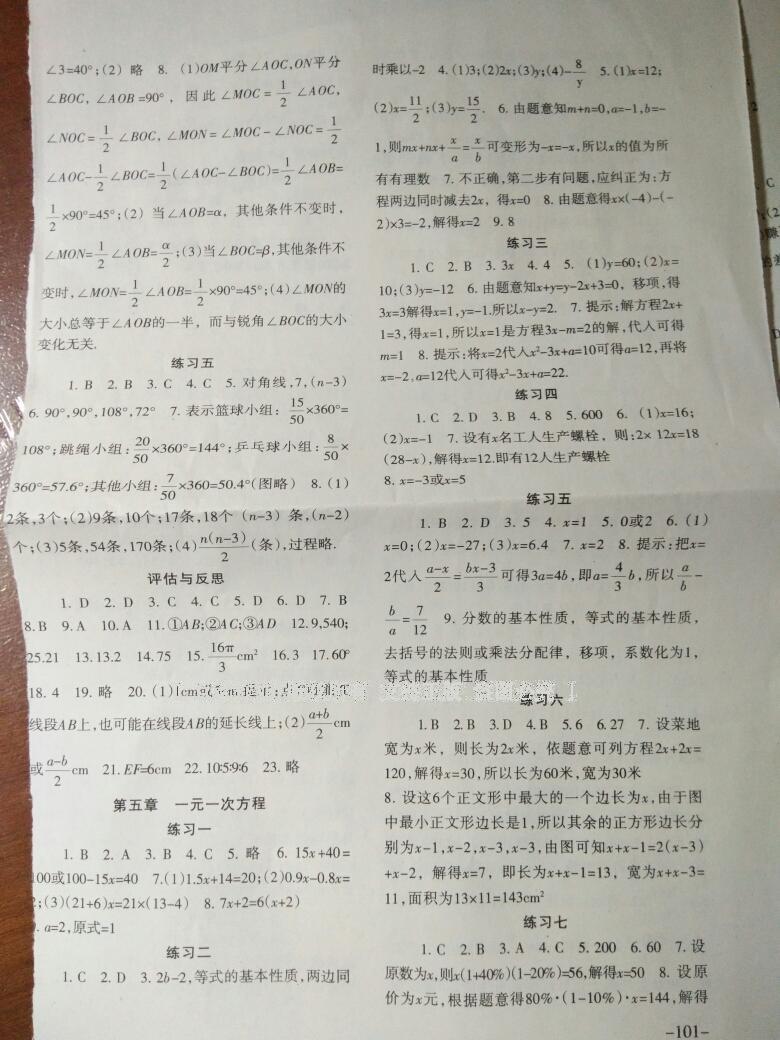 ∠3=40°;(2) 略 8. (1)OM平分∠AOC,ON平分
∠BOC, ∠AOB=90°, 因此∠MOC=1/2∠AOC,
∠NOC=1/2∠BOC, ∠MON=∠MOC-∠NOC=1/2
∠AOC-1/2∠BOC=1/2(∠AOC-∠BOC)=1/2∠AOB=
1/2×90°=45°;(2) 当∠AOB=α, 其他条件不变时,
∠MON=1/2∠AOB=α/2;(3)当∠BOC=β,其他条件不
变时,∠MON=1/2∠AOB=1/2×90°=45°;(4)∠MON的
大小总等于∠AOB的一半, 而与锐角∠BOC的大小
变化无关.
练习五
1. B 2. B 3. C 4. C 5. 对角线,7,(n-3)
6. 90°,90°,108°,72° 7. 表示篮球小组:15/50×360°=
108°;跳绳小组:20/50×360°=144°;乒乓球小组:8/50×
360°=57.6°;其他小组:7/50×360=50.4°(图略) 8. (1)
2条,3个;(2)9条,10个;17条,18个 (n-3) 条,(n-2)
个;(3)5条,54条,170条;(4)n(n-3)/2(条),过程略.
评估与反思
1. D 2. D 3. C 4. C 5. D 6. D 7. B
8. B 9. A 10. A 11. ①AB;②AC;③AD 12. 9,540;
25.21 13. 13.2 14. 75 15. 16π/3cm² 16. 3 17. 60°
18. 4 19. 略 20. (1)
线段AB上,也可能在线段AB的延长线上;(2)a+b/2cm
或a-b/2cm 21. EF=6cm 22. 10:5:9:6 23. 略
第五章 一元一次方程
练习一
1. B 2. A 3. B 4. C 5. 略 6. 15x+40=
100或100-15x=40 7.(1)1.5x+14=20;(2)0.9x-0.8x=
2;(3)(21+6)x=21×(13-4) 8. 7x+2=6(x+2)
. a=2,原式=1
练习二
1. C 2. D 3. 2b-2,等式的基本性质,两边同
时乘以-2 4. (1)3;(2)2x;(3)y;(4)-8/y 5. (1)x=12;
(2)x=11/2;(3)y=15/2. 6. 由题意知m+n=0,a=-1,b=-
1,则mx+nx+x/a=x/b可变形为-x=-x,所以x的值为所
有有理数 7. 不正确,第二步有问题,应纠正为:方
程两边同时减去2x, 得x=0 8. 由题意得x×(-4)-(-
2)×3=-2,解得x=2 9. 8
练习三
1. C 2. B 3. 3x 4. 4 5. (1)y=60;(2)x=
10;(3)y=-12 6. 由题意知x+y=y-2x+3=0, 移项,得
3x=3解得x=1,y=-1.所以x-y=2. 7. 提示:解方程2x+
1=3,得x=1,所以x=1是方程3x-m=2的解,代入可得
m=1 8. 提示:将x=2代入x²-3x+a=10可得a=12,再将
x=-2,a=12代入可得x²-3x+a=22.
练习四
1. C 2. D 3. B 4. 8 5. 600 6. (1)x=16;
(2)x=-1 7. 设有x名工人生产螺栓, 则:2×12x=18
(28-x),解得x=12.即有12人生产螺栓
8. x=-3或x=5
练习五
1. B 2. D 3. 5 4. x=1 5. 0或2 6. (1)
x=0;(2)x=-27;(3)x=6.4 7. x=2 8. 提示:把x=
2代入a-x/2=bx-3/3可得3a=4b,即a=4/3b,所以a/b-
b/a=7/12 9. 分数的基本性质, 等式的基本性质,
去括号的法则或乘法分配律, 移项, 系数化为1,
等式的基本性质
练习六
1. B 2. B 3. D 4. B 5. 6 6. 27 7. 设菜地
宽为x米, 则长为2x米, 依题意可列方程2x+2x=
120,解得x=30,所以长为60米,宽为30米
8. 设这6个正文形中最大的一个边长为x,由于图
中最小正文形边长是1,所以其余的正方形边长分
别为x-1,x-2,x-3,x-3,由图可知x+x-1=2(x-3)
+x-2, 解得x=7, 即长为x+x-1=13, 宽为x+x-3=
11,面积为13×11=143cm²
练习七
1. C 2. B 3. A 4. C 5. 200 6. 60 7. 设
原数为x,则x(1+40%)(1-20%)=56,解得x=50 8. 设原
价为x元,根据题意得80%·(1-10%)·x=144,解得
-101-